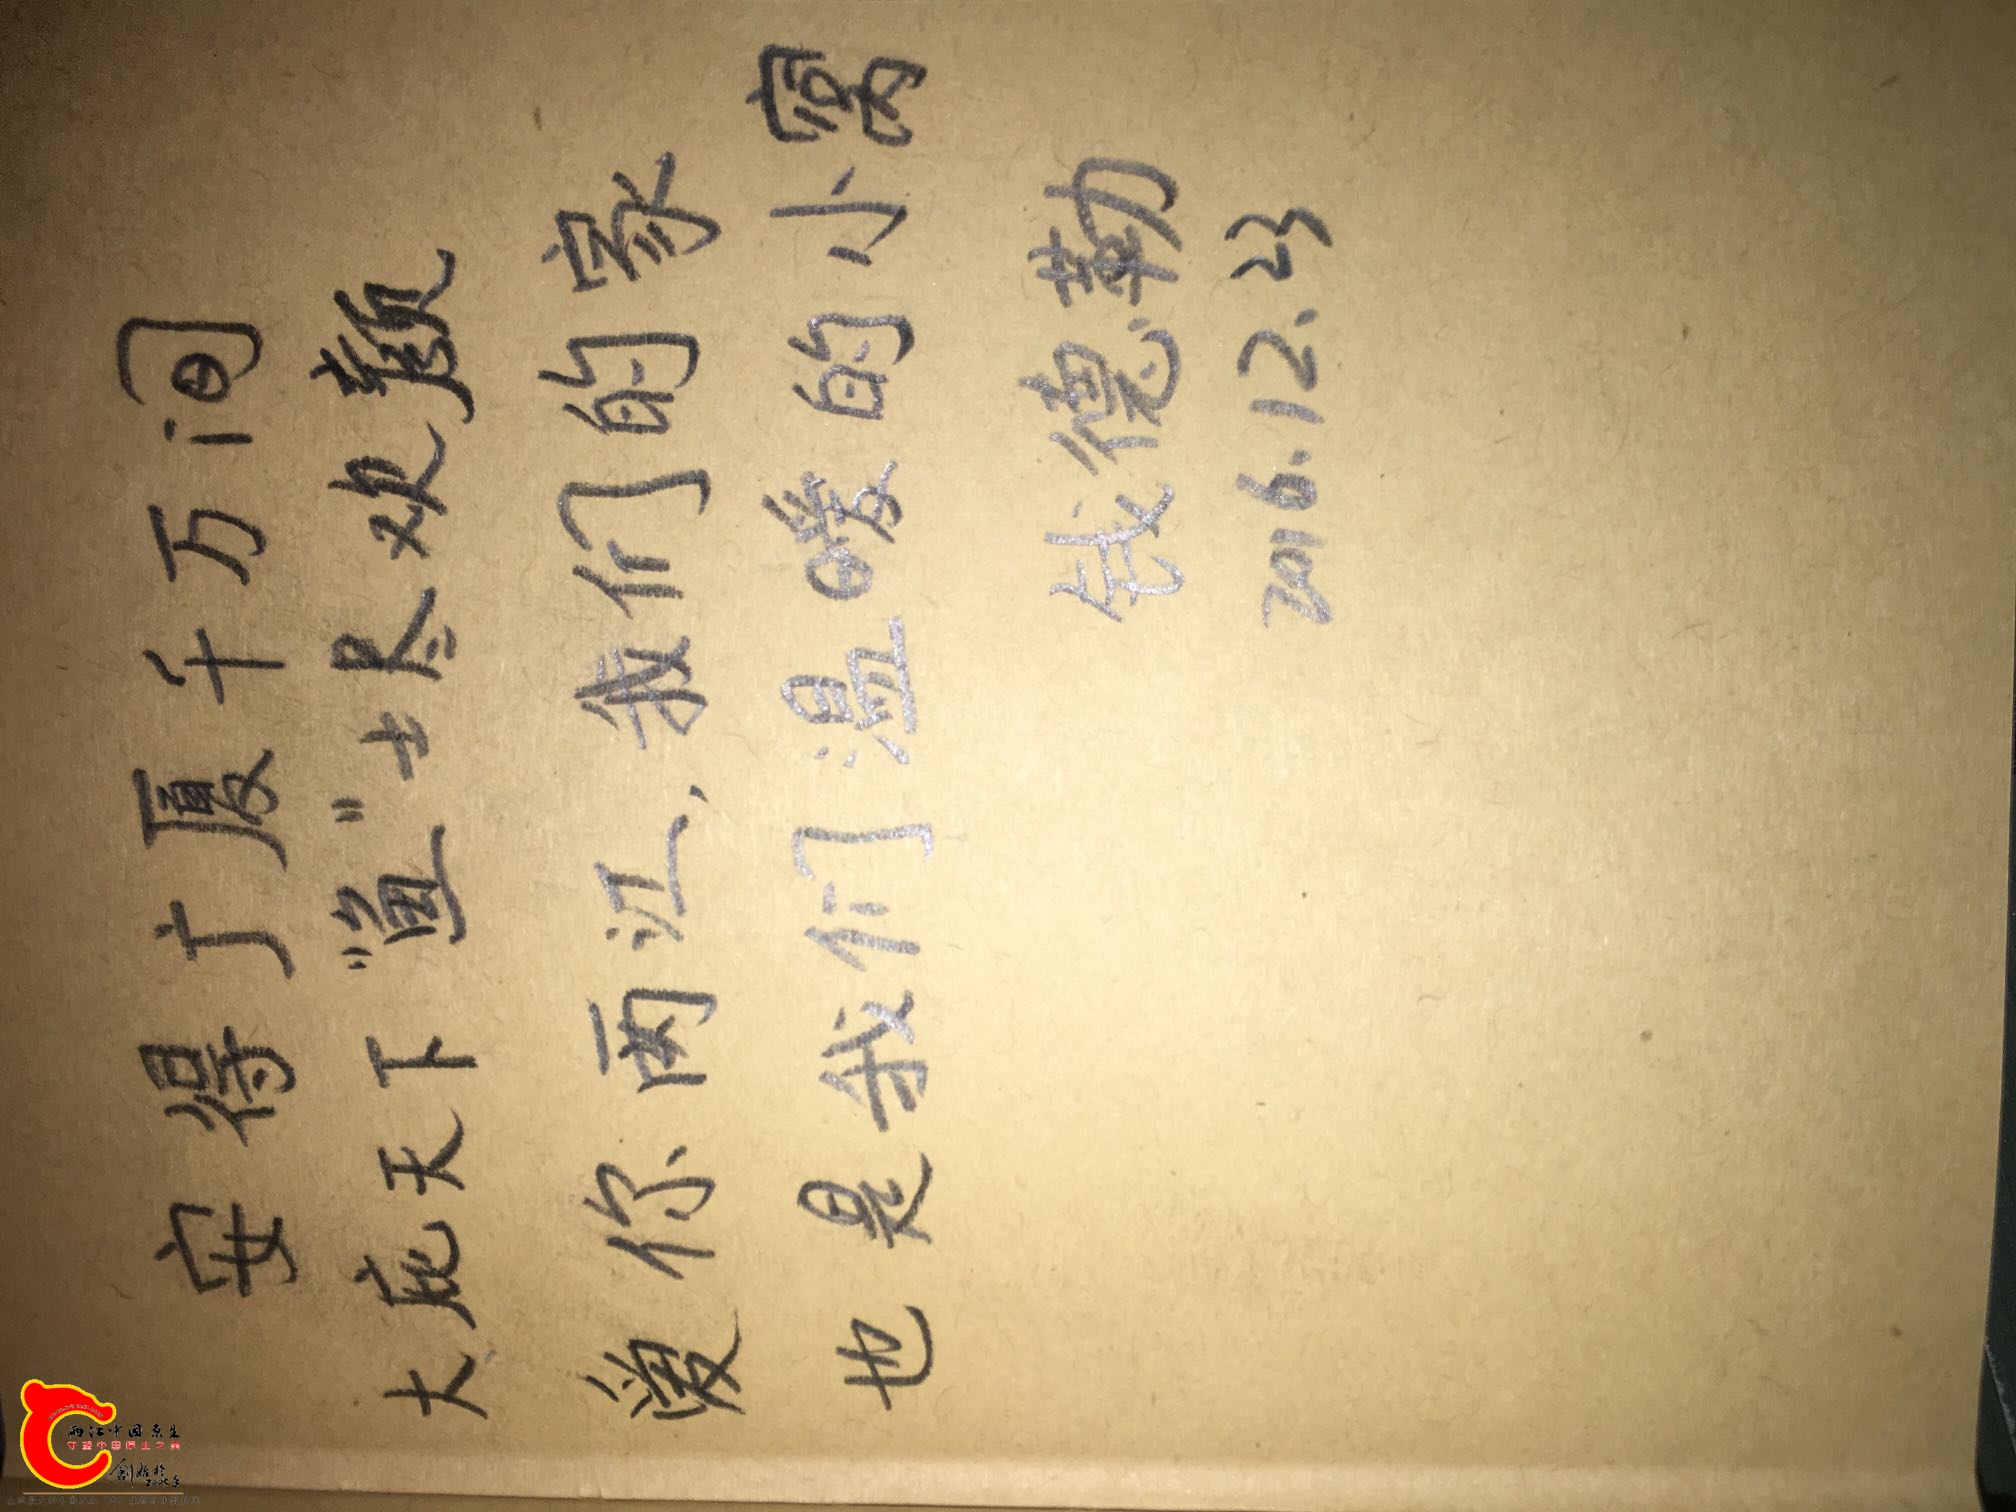 安得广厦千万间
大庇天下“渔”士尽欢颜
爱你两江，我们的家
也是我们温暖的小窝
钱德勒
2016.12.23
两江中国原生
守望中国原生之美
创始于